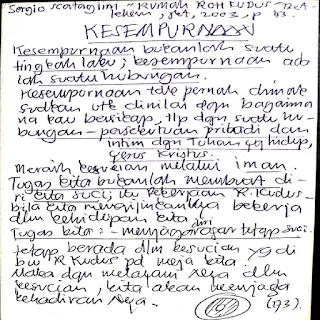 Sergio scataglini "RUMAH ROH KUDUS" - 
2003, p 
KESEMPURNAAN
Kesempurnaan bukanlah suatu
tingkah laku; kesempurnaan ada
lah suatu hubungan.
Kesempurnaan tdk pernah dimak
sudkan utk dinilai dgn bagaima
na kau bersikap, ttp dgn suatu hu-
bungan - persekutuan pribadi dan
intim dgn Tuhan yg hidup,
Yesus Kristus.
Meraih kesucian melalui iman.
Tugas kita bukanlah membuat di-
ri kita suci; itu pekerjaan R. Kudus -
bila kita mengijinkannya bekerja
dlm kehidupan kita
Tugas kita: - menjaga diri agar tetap suci.
tetap berada dlm kesucian yg di
R Kudus pd meja kita.
Maka dgn melayani Nya dlm
kesucian, kita akan menjaga
kehadiran Nya.
(193).